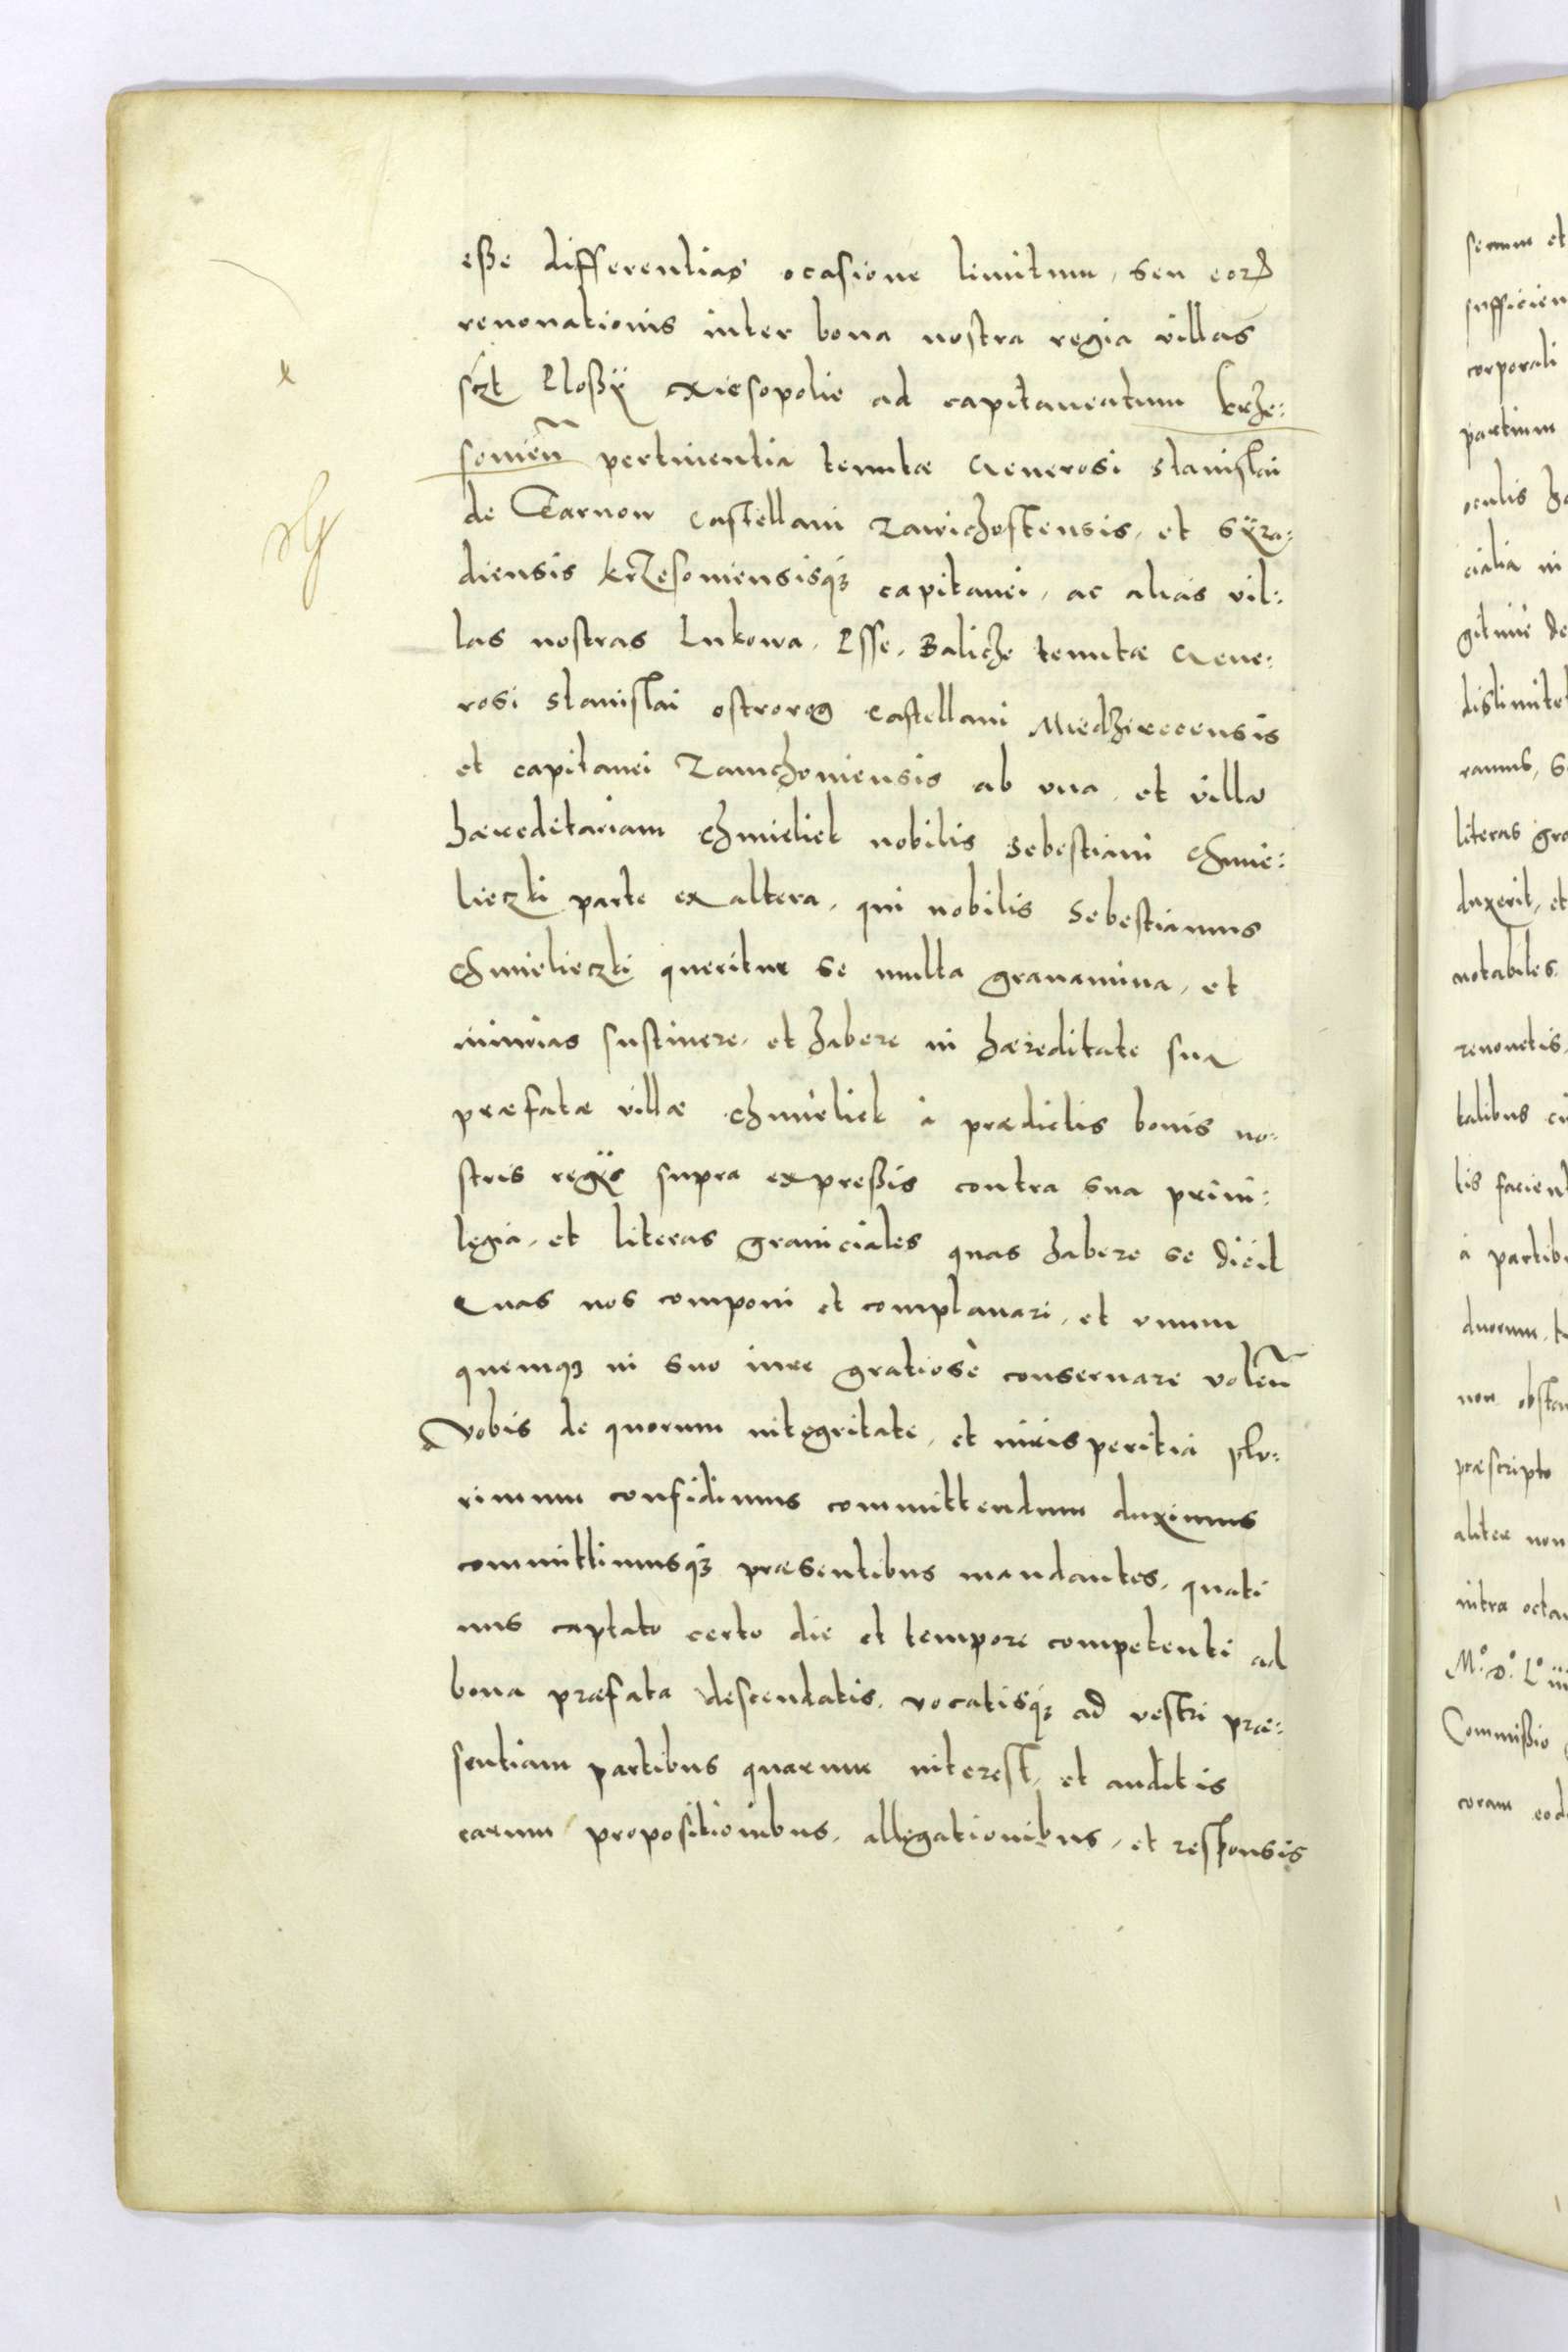 eße differentias ocasione limitum, seu eorꝝ
renouationis inter bona nostra regia villas
sczt Rloßÿ Xiesopolie ad capitaneatum krze:
souień pertinentia tenutæ Generosi Stanislai
de Tarnow Castellani Zawichostensis, et Sÿra:
diensis krzesouiensisqʒ capitanei, ac alias vil:
las nostras Lukowa, Osse, Baliche tenutæ Gene:
rosi Stanislai Ostrorog Castellani Miedzirecensis
et capitanei Zamchouiensis ab vna, et villā
hæreditariam Chmieliek nobilis Sebestiani Chmie:
lieczki parte ex altera, qui nobilis Sebestianus
Chmielieczki queritur se multa grauamina, et
iniurias sustinere, et habere in hæreditate sua
præfatæ villæ Chmieliek à prædictis bonis no:
stris regÿs supra expreßis contra sua priui:
legia, et literas graniciales quas habere se dicit
Quas nos componi et complanari, et vnum
quemqʒ in suo iure gratiosè conseruare voleń
Vobis de quorum integritate, et iuris peritia plu:
rimum confidimus committendum duximus
committimusqʒ præsentibus mandantes, quati
nus captato certo die et tempore competenti ad
bona præfata descendatis, vocatisqʒ ad vestri præ:
sentiam partibus quarum interest, et auditis
earum propositionibus, allegationibus, et responsis
serum et
sufficien
corporali
partium
oculis ha
cialia in
gitimè de
dislimitet
ramus, S
literas gra
duxerit, et
notabiles
renouetis,
talibus ci
tis facient
à partibu
duorum, t
non obstan
præscripto
aliter non
intra octau
Mº Dº Lº iii
Commißio
coram eod